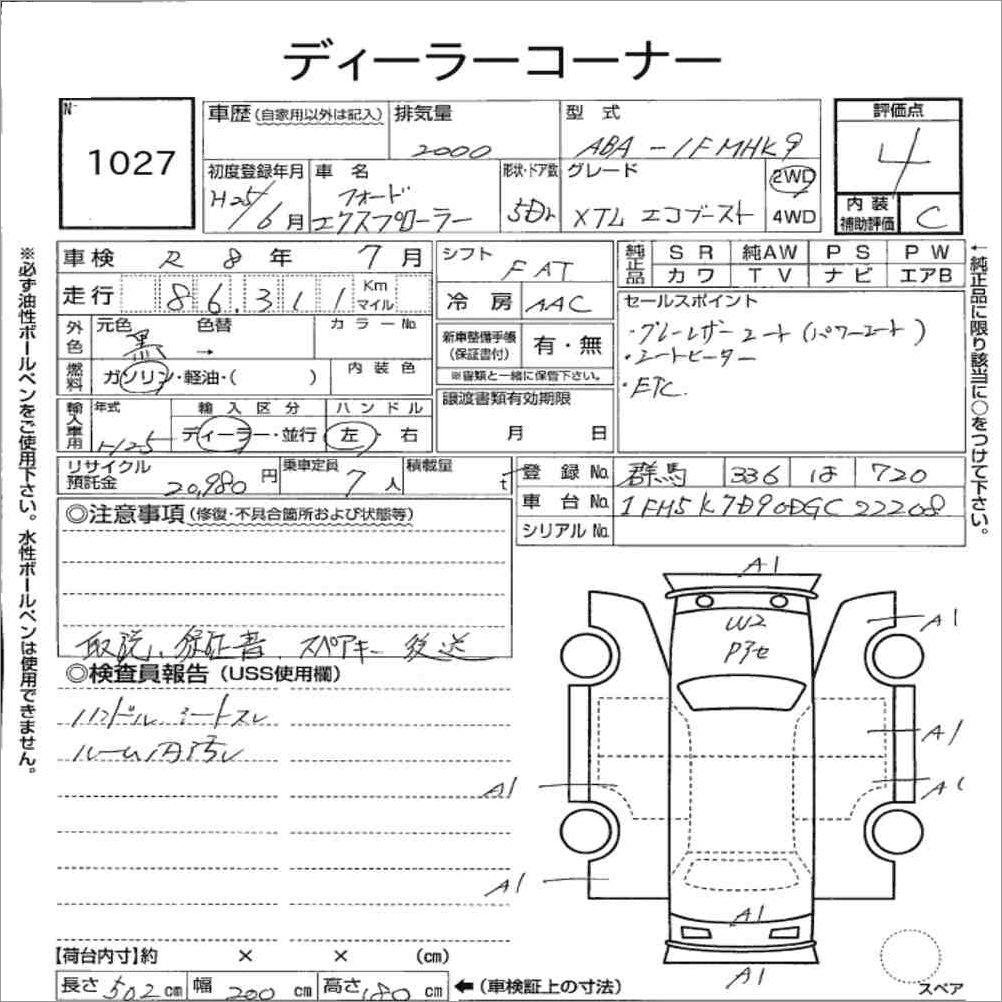 ディーラーコーナー
No 1027
車歴 (自家用以外は記入) 排気量 2000
型式 ABA-1FMHK9
評価点 4
初度登録年月 H25/6月
車名 フォード エクスプローラー
形状・ドア数 5Dr
グレード XTL エコブースト
2WD
4WD
内装補助評価 C
車検 R 8年 7月
シフト FAT
純正品 SR 純AW PS PW
カワ TV ナビ エアB
走行 86,311 Km マイル
冷房 AAC
セールスポイント
・グレーレザーシート(パワーシート)
・シートヒーター
・ETC.
外色 元色 黒 色替 → カラーNo.
新車整備手帳(保証書付) 有・無
※書類と一緒に保管下さい。
燃料 ガソリン・軽油・( ) 内装色
譲渡書類有効期限
月 日
輸入車用 年式 H25
輸入区分 ディーラー・並行
ハンドル 左・右
リサイクル預託金 20,980円
乗車定員 7人
積載量 t
登録No. 群馬 336 は 720
車台No. 1FM5K7D90DGC22208
シリアルNo.
◎注意事項(修復・不具合箇所および状態等)
取説、保証書、スペアキー後送
◎検査員報告(USS使用欄)
ハンドル シートスレ
ルーム内汚レ
A1
W2
Pアセ
A1
A1
A1
A1
A1
A1
A1
【荷台内寸】約 × × (cm)
長さ 502cm 幅 200cm 高さ 180cm ←(車検証上の寸法)
スペア
※必ず油性ボールペンをご使用下さい。水性ボールペンは使用できません。
←純正品に限り該当に○をつけて下さい。